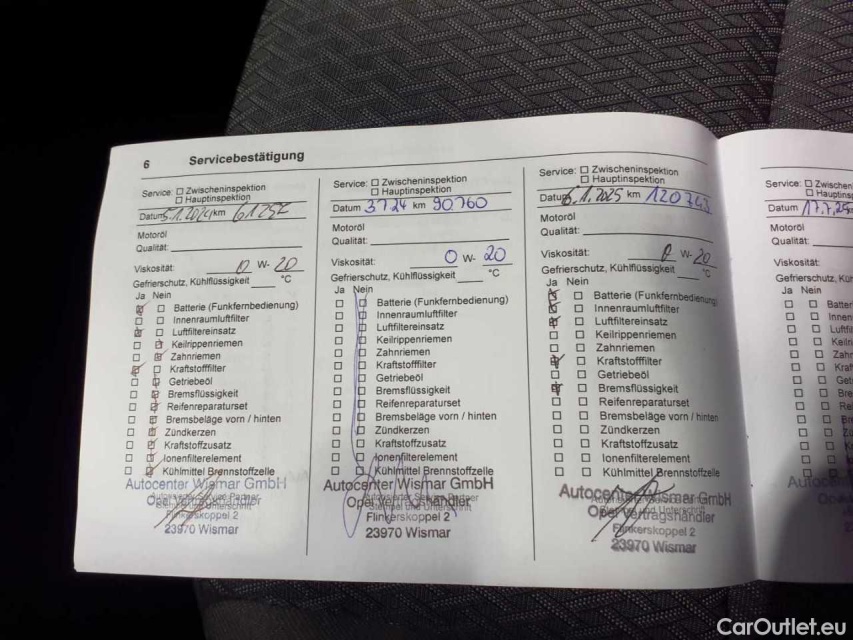 6 Servicebestätigung
Service: Zwischeninspektion
Hauptinspektion
Datum 5.1.2024 km 61252
Motoröl
Qualität:
Viskosität: 0 W- 20
Gefrierschutz, Kühlflüssigkeit °C
Ja Nein
Batterie (Funkfernbedienung)
Innenraumluftfilter
Luftfiltereinsatz
Keilrippenriemen
Zahnriemen
Kraftstofffilter
Getriebeöl
Bremsflüssigkeit
Reifenreparaturset
Bremsbeläge vorn / hinten
Zündkerzen
Kraftstoffzusatz
Ionenfilterelement
Kühlmittel Brennstoffzelle
Autocenter Wismar GmbH
Opel Vertragshändler
Flinkerskoppel 2
23970 Wismar
Service: Zwischeninspektion
Hauptinspektion
Datum 3724 km 90760
Motoröl
Qualität:
Viskosität: 0 W- 20
Gefrierschutz, Kühlflüssigkeit °C
Ja Nein
Batterie (Funkfernbedienung)
Innenraumluftfilter
Luftfiltereinsatz
Keilrippenriemen
Zahnriemen
Kraftstofffilter
Getriebeöl
Bremsflüssigkeit
Reifenreparaturset
Bremsbeläge vorn / hinten
Zündkerzen
Kraftstoffzusatz
Ionenfilterelement
Kühlmittel Brennstoffzelle
Autocenter Wismar GmbH
Autorisierter Service Partner
Opel Vertragshändler
Stempel und Unterschrift
Flinkerskoppel 2
23970 Wismar
Service: Zwischeninspektion
Hauptinspektion
Datum 6.1.2025 km 120343
Motoröl
Qualität:
Viskosität: 0 W- 20
Gefrierschutz, Kühlflüssigkeit °C
Ja Nein
Batterie (Funkfernbedienung)
Innenraumluftfilter
Luftfiltereinsatz
Keilrippenriemen
Zahnriemen
Kraftstofffilter
Getriebeöl
Bremsflüssigkeit
Reifenreparaturset
Bremsbeläge vorn / hinten
Zündkerzen
Kraftstoffzusatz
Ionenfilterelement
Kühlmittel Brennstoffzelle
Autocenter Wismar GmbH
Opel Vertragshändler
Flinkerskoppel 2
23970 Wismar
Service: Zwischen
Hauptins
Datum 17.7.25
Motoröl
Qualität:
Viskosität:
Gefrierschutz, Kü
Ja Nein
Batter
Innen
Luftfi
Keilri
Zahn
Kraf
Get
Bre
Re
CarOutlet.eu